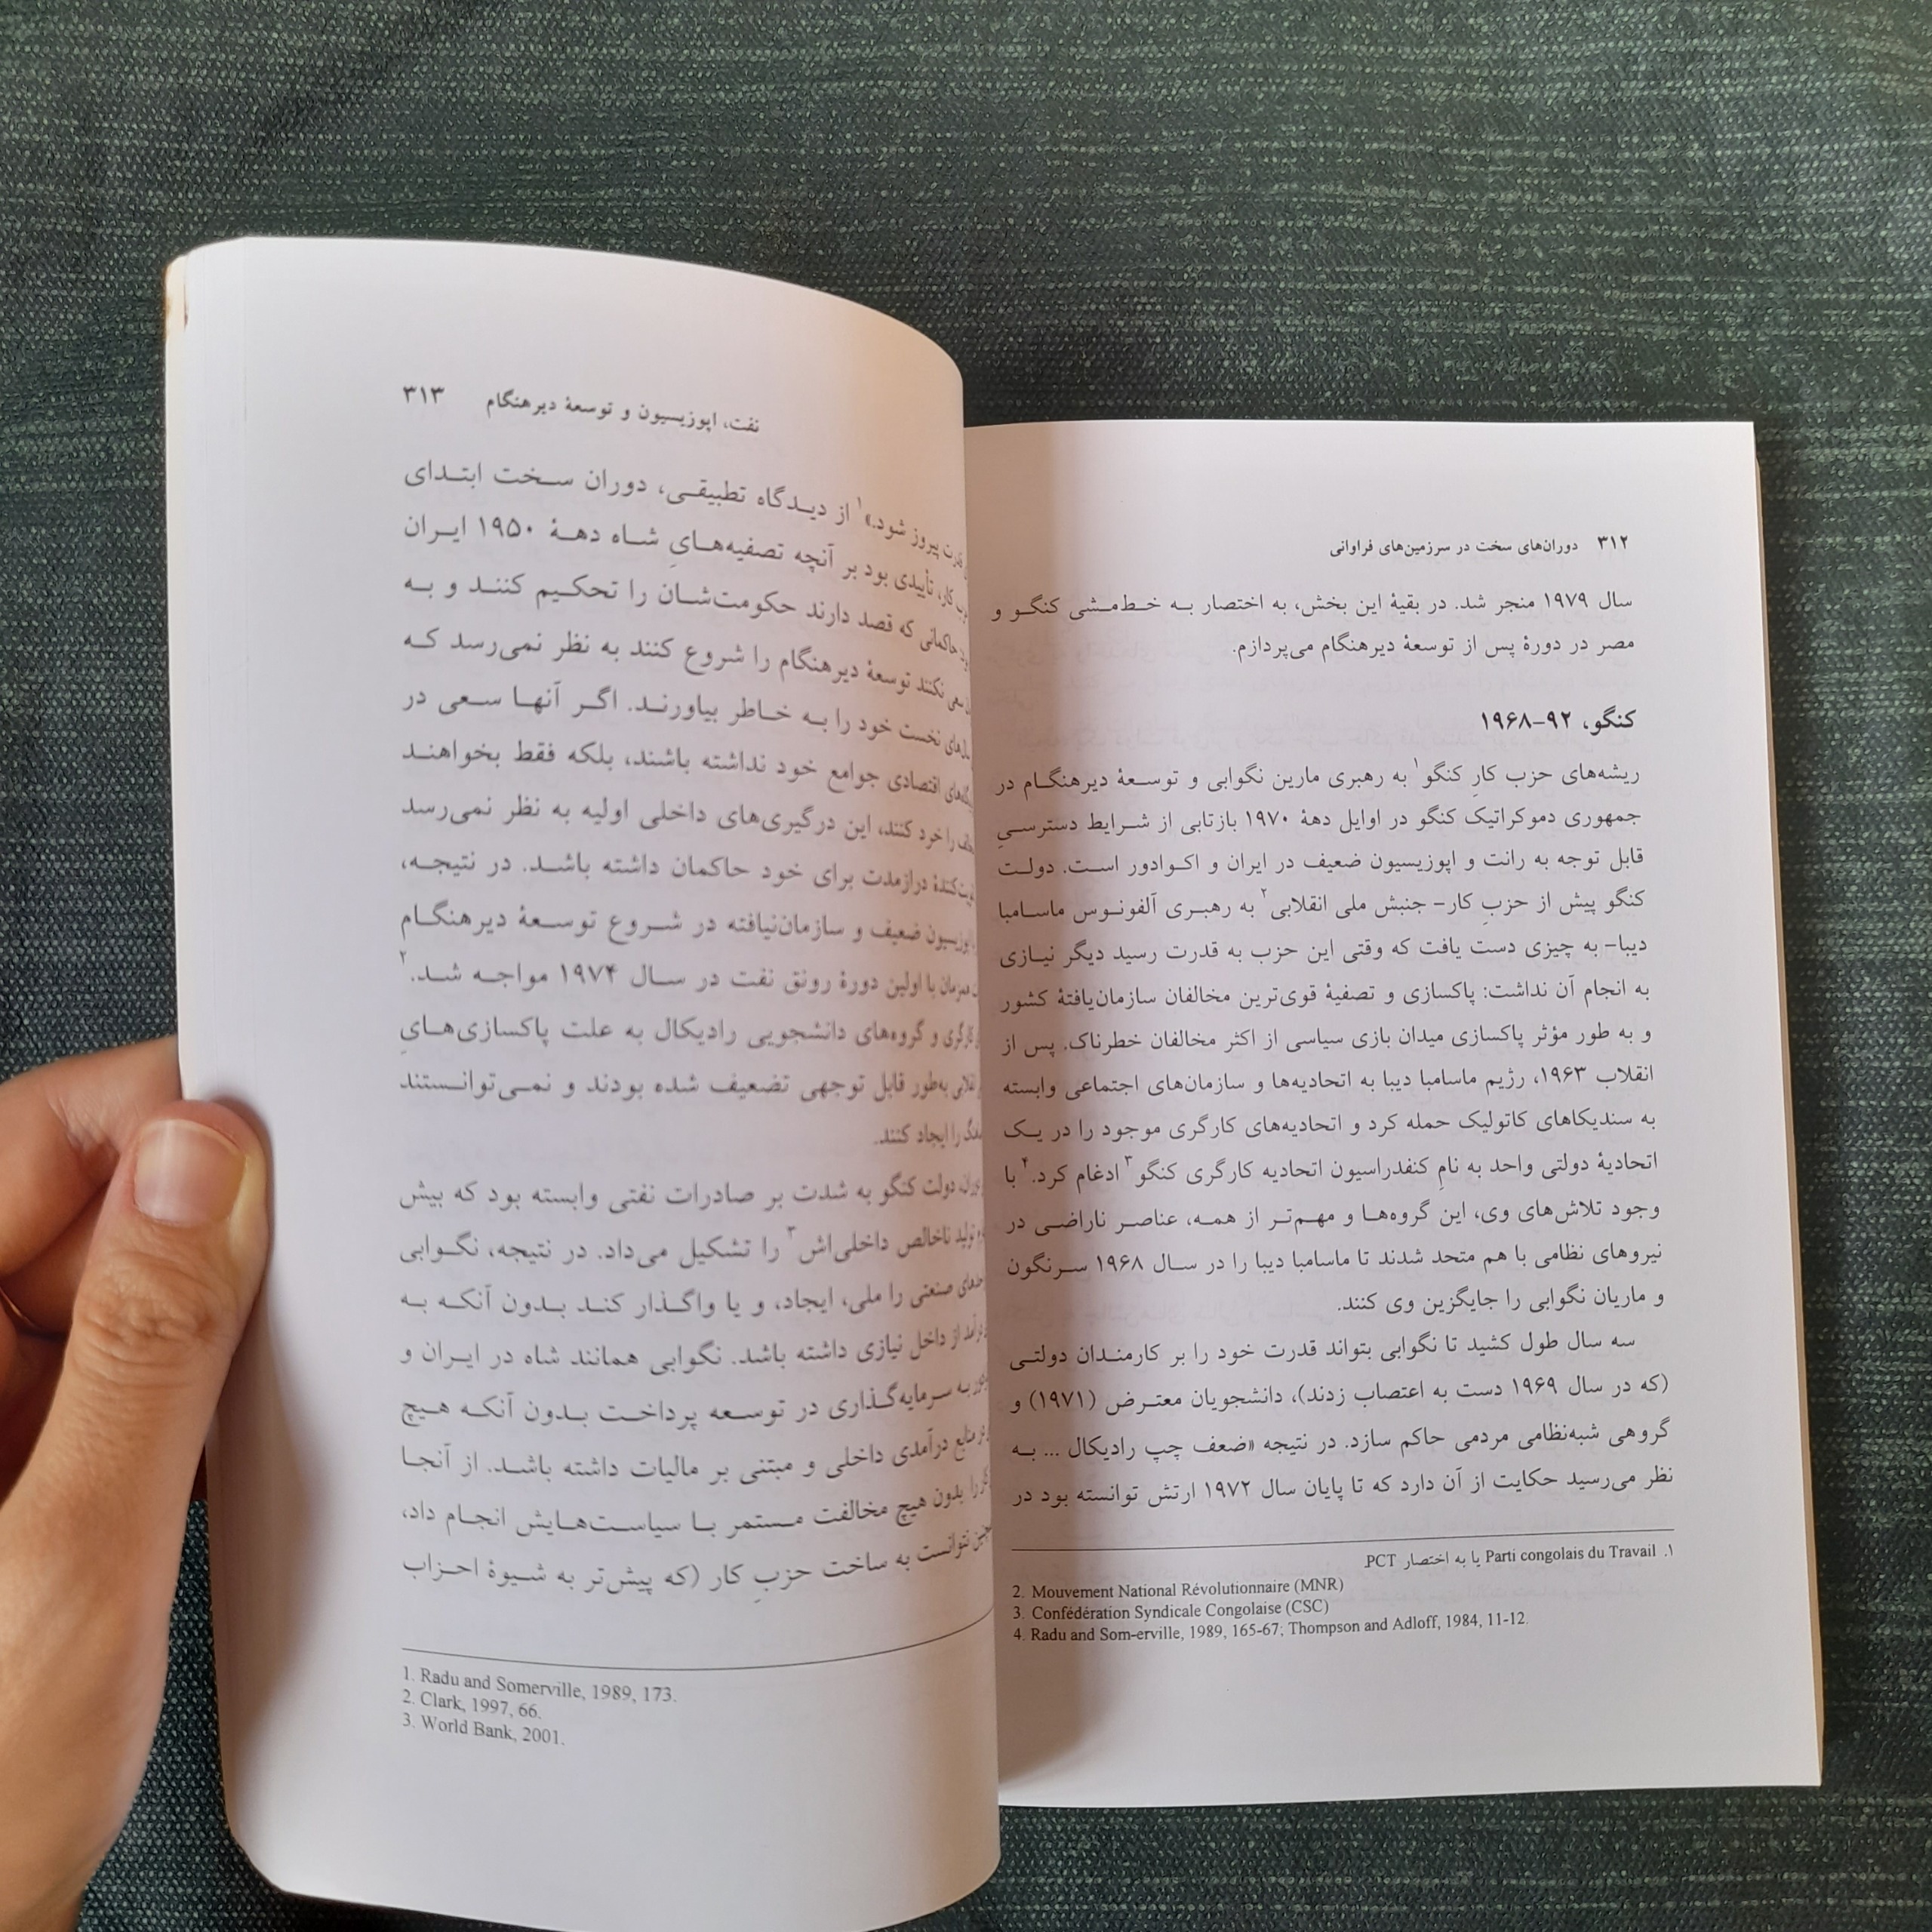 ۳۱۲ دوران‌های سخت در سرزمین‌های فراوانی
سال ۱۹۷۹ منجر شد. در بقیهٔ این بخش، به اختصار به خط‌مشی کنگو و
مصر در دورهٔ پس از توسعهٔ دیرهنگام می‌پردازم.
کنگو، ۹۲–۱۹۶۸
ریشه‌های حزب کارِ کنگو۱ به رهبری مارین نگوابی و توسعهٔ دیرهنگام در
جمهوری دموکراتیک کنگو در اوایل دههٔ ۱۹۷۰ بازتابی از شرایط دسترسیِ
قابل توجه به رانت و اپوزیسیون ضعیف در ایران و اکوادور است. دولت
کنگو پیش از حزبِ کار– جنبش ملی انقلابی۲ به رهبری آلفونوس ماسامبا
دیبا– به چیزی دست یافت که وقتی این حزب به قدرت رسید دیگر نیازی
به انجام آن نداشت: پاکسازی و تصفیهٔ قوی‌ترین مخالفان سازمان‌یافتهٔ کشور
و به طور مؤثر پاکسازی میدان بازی سیاسی از اکثر مخالفان خطرناک. پس از
انقلاب ۱۹۶۳، رژیم ماسامبا دیبا به اتحادیه‌ها و سازمان‌های اجتماعی وابسته
به سندیکاهای کاتولیک حمله کرد و اتحادیه‌های کارگری موجود را در یک
اتحادیهٔ دولتی واحد به نامِ کنفدراسیون اتحادیه کارگری کنگو۳ ادغام کرد.۴ با
وجود تلاش‌های وی، این گروه‌ها و مهم‌تر از همه، عناصر ناراضی در
نیروهای نظامی با هم متحد شدند تا ماسامبا دیبا را در سال ۱۹۶۸ سرنگون
و ماریان نگوابی را جایگزین وی کنند.
سه سال طول کشید تا نگوابی بتواند قدرت خود را بر کارمندان دولتی
(که در سال ۱۹۶۹ دست به اعتصاب زدند)، دانشجویان معترض (۱۹۷۱) و
گروهی شبه‌نظامی مردمی حاکم سازد. در نتیجه «ضعف چپ رادیکال ... به
نظر می‌رسید حکایت از آن دارد که تا پایان سال ۱۹۷۲ ارتش توانسته بود در
۱. Parti congolais du Travail یا به اختصار PCT.
2. Mouvement National Révolutionnaire (MNR)
3. Confédération Syndicale Congolaise (CSC)
4. Radu and Som-erville, 1989, 165-67; Thompson and Adloff, 1984, 11-12.
نفت، اپوزیسیون و توسعهٔ دیرهنگام ۳۱۳
قدرت پیروز شود.»۱ از دیدگاه تطبیقی، دوران سخت ابتدای
کار، تأییدی بود بر آنچه تصفیه‌هایِ شاه دههٔ ۱۹۵۰ ایران
حاکمانی که قصد دارند حکومت‌شان را تحکیم کنند و به
سعی نکنند توسعهٔ دیرهنگام را شروع کنند به نظر نمی‌رسد که
نخست خود را به خاطر بیاورند. اگر آنها سعی در
اقتصادی جوامع خود نداشته باشند، بلکه فقط بخواهند
را خرد کنند، این درگیری‌های داخلی اولیه به نظر نمی‌رسد
درازمدت برای خود حاکمان داشته باشد. در نتیجه،
اپوزیسیون ضعیف و سازمان‌نیافته در شروع توسعهٔ دیرهنگام
همزمان با اولین دورهٔ رونق نفت در سال ۱۹۷۴ مواجه شد.۲
کارگری و گروه‌های دانشجویی رادیکال به علت پاکسازی‌هایِ
به‌طور قابل توجهی تضعیف شده بودند و نمی‌توانستند
را ایجاد کنند.
دولت کنگو به شدت بر صادرات نفتی وابسته بود که بیش
تولید ناخالص داخلی‌اش۳ را تشکیل می‌داد. در نتیجه، نگوابی
صنعتی را ملی، ایجاد، و یا واگذار کند بدون آنکه به
درآمد از داخل نیازی داشته باشد. نگوابی همانند شاه در ایران و
به سرمایه‌گذاری در توسعه پرداخت بدون آنکه هیچ
منابع درآمدی داخلی و مبتنی بر مالیات داشته باشد. از آنجا
را بدون هیچ مخالفت مستمر با سیاست‌هایش انجام داد،
نتوانست به ساخت حزبِ کار (که پیش‌تر به شیوهٔ احزاب
1. Radu and Somerville, 1989, 173.
2. Clark, 1997, 66.
3. World Bank, 2001.